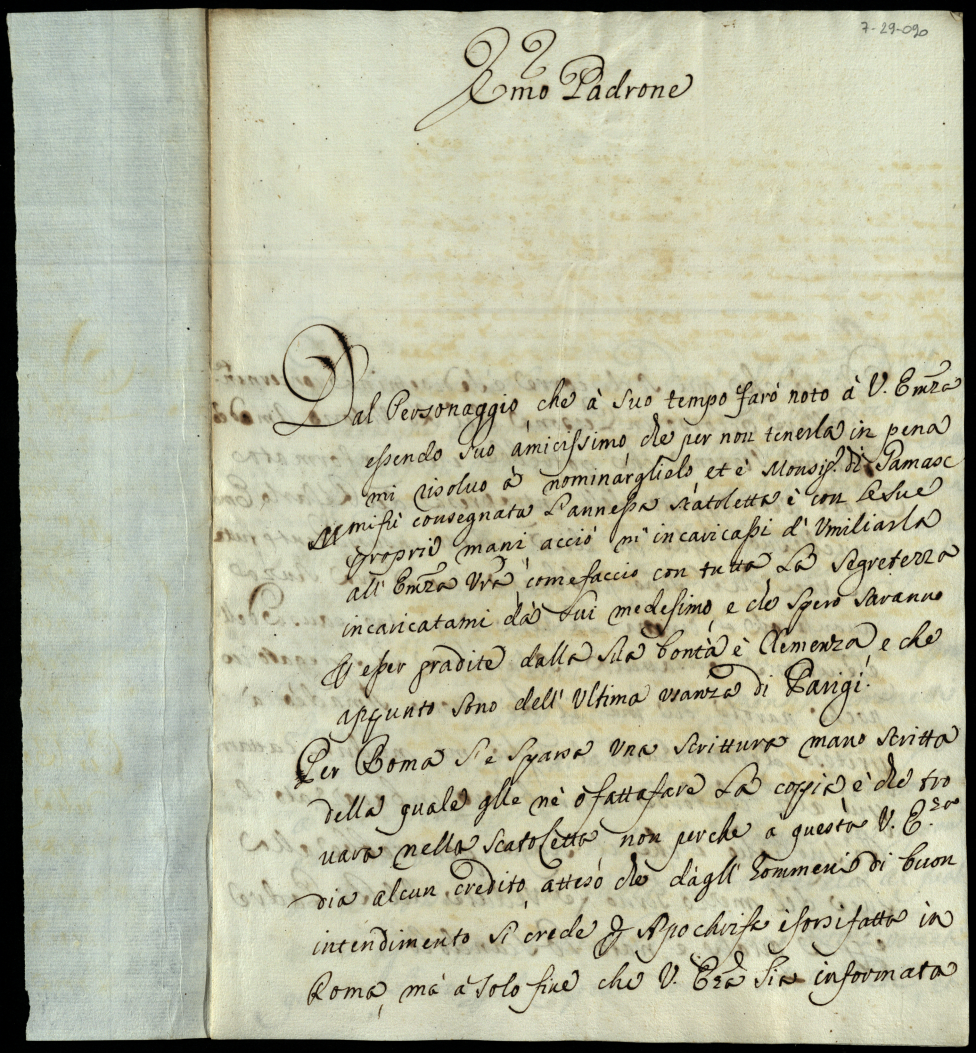 7-29-090
Emo Padrone
Dal Personaggio che à suo tempo farò noto à V. Emza
essendo suo amicissimo che per non tenerla in pena
mi risoluo à nominarglielo et è Monsigr. di Damasc
mi fù consegnata l'annessa scatoletta è con le sue
proprie mani acciò m'incaricassi d'Umiliarla
all'Emza Vra come faccio con tutta la Segretezza
incaricatami dà lui medesimo, e che spero saranno
esser gradite dalla sua bontà è Clemenza e che
appunto sono dell'Ultima usanza di Parigi.
Per Roma si è sparsa una scrittura mano scritta
della quale glie nè ò fatta fare la coppia è che tro
uara nella scatoletta non perche à questa V. E.za
dia alcun credito atteso che dagl'hommeni di buon
intendimento si crede Apochrifa è forsi fatta in
Roma, mà à solo fine che V. Eza sia informata